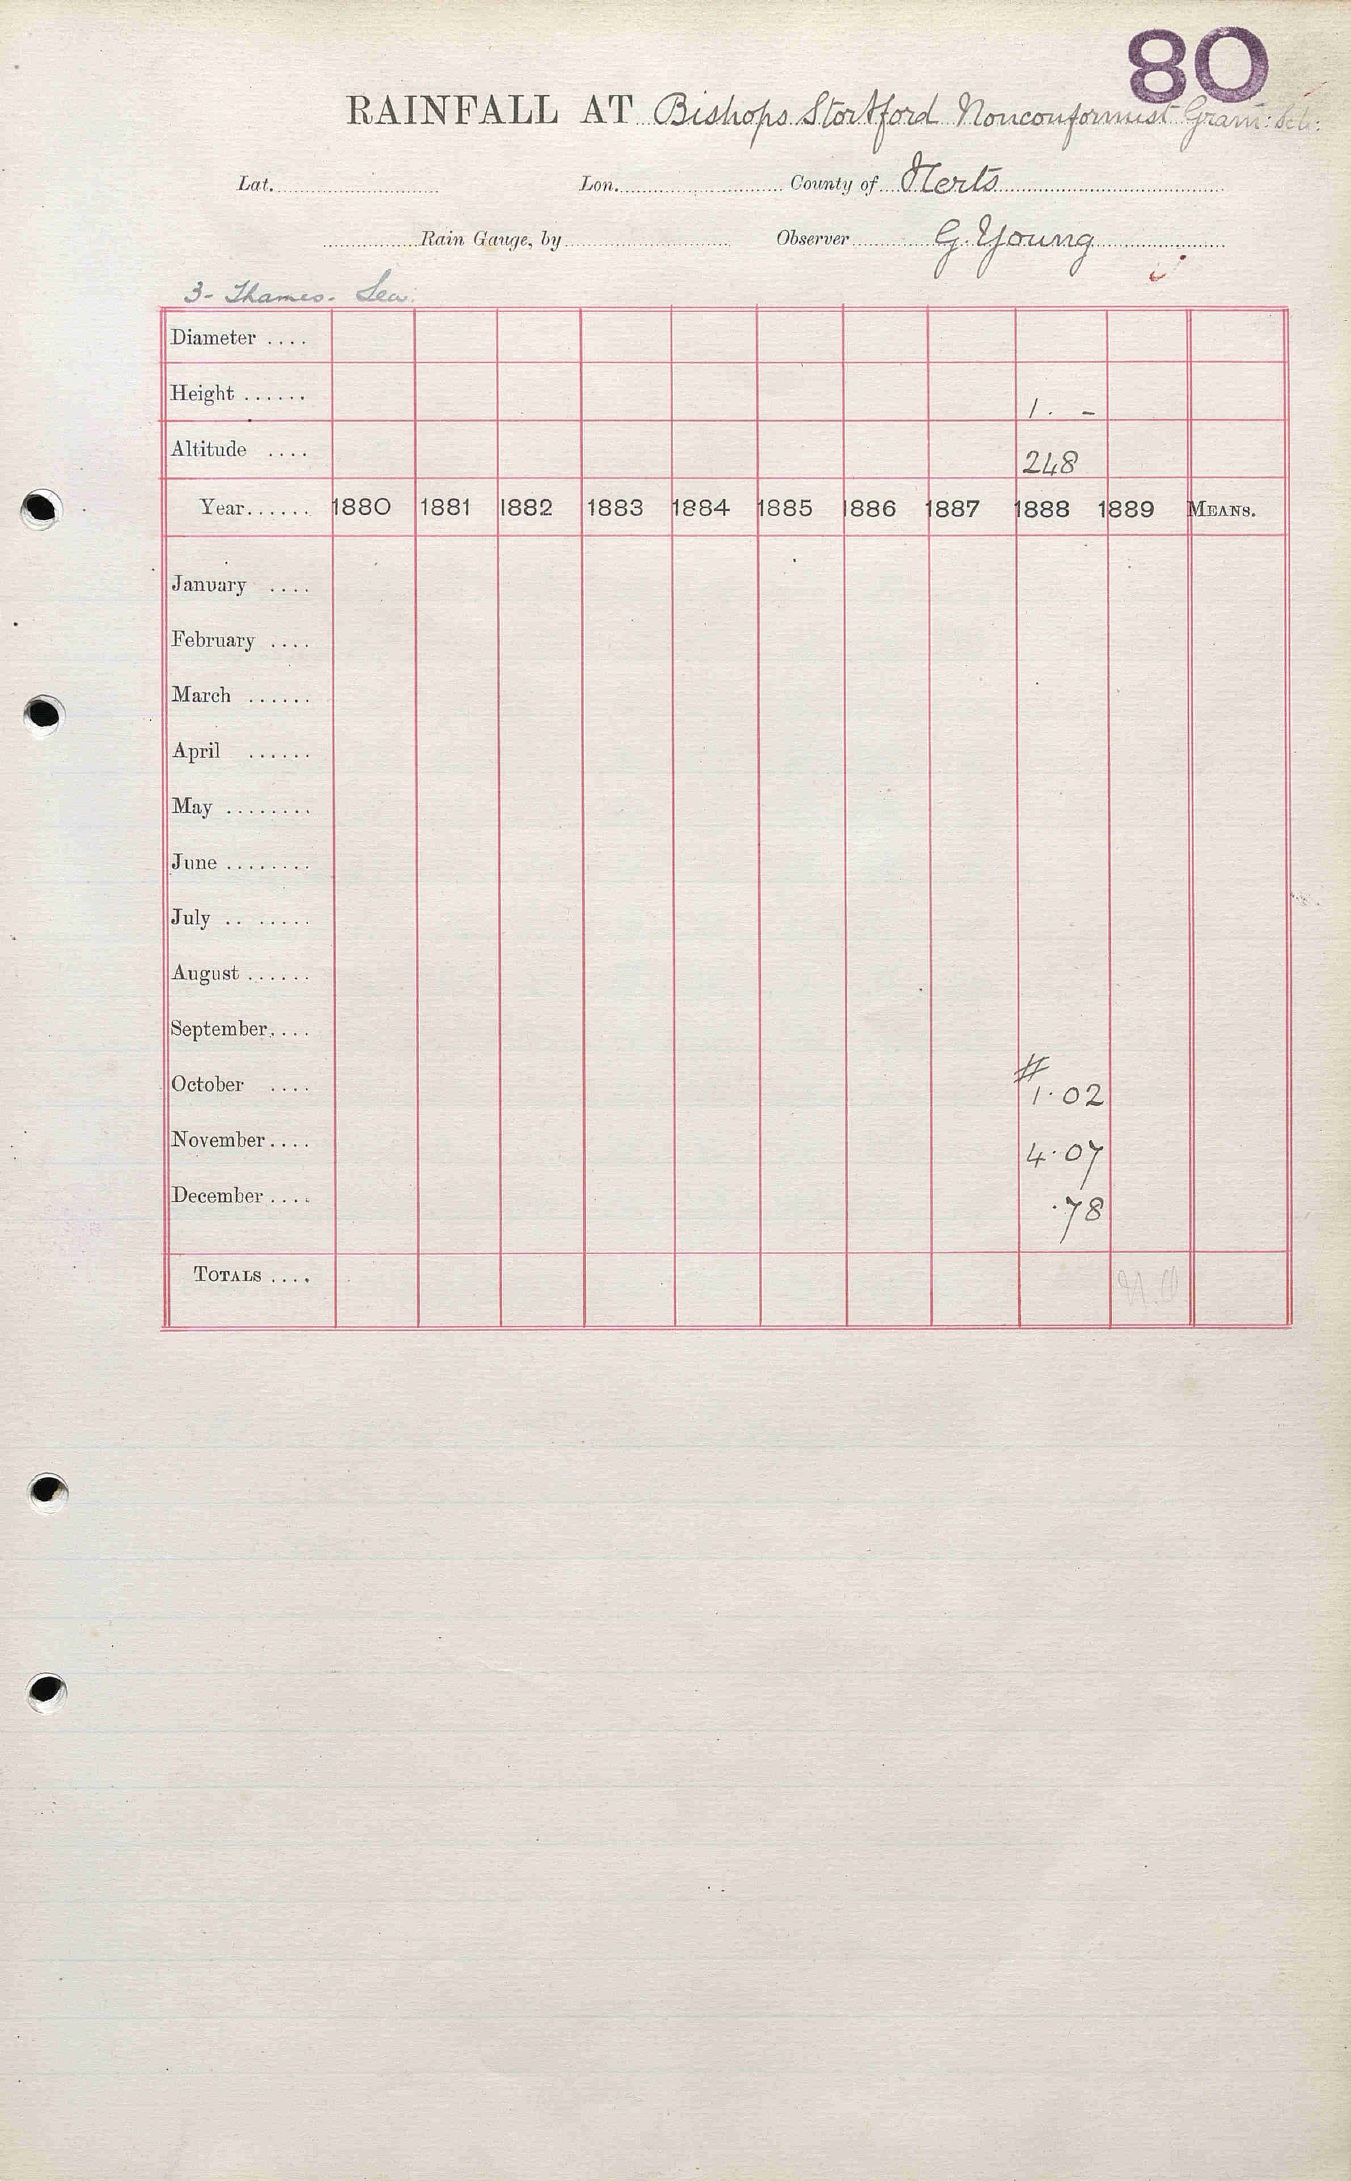 80
RAINFALL AT Bishops Stortford Nonconformist Gram: Sch:
Lat. Lon. County of Herts
Rain Gauge, by Observer G. Young
3 - Thames - Lea.
Diameter ....
Height ...... 1. -
Altitude .... 248
Year...... 1880 1881 1882 1883 1884 1885 1886 1887 1888 1889 MEANS.
January ....
February ....
March ......
April ......
May ........
June ........
July .. ......
August ......
September....
October .... # 1.02
November.... 4.07
December .... .78
TOTALS ....